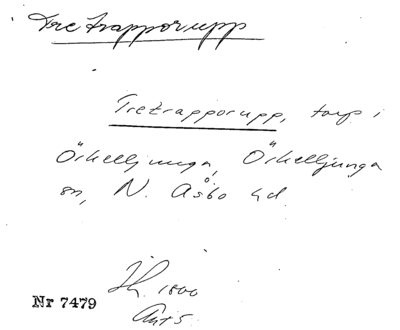 Tre trapporupp
Tretrapporupp, torp i
Örkelljunga, Örkelljunga
sn, N. Åsbo hd
Jh. 1800
Nr 7479